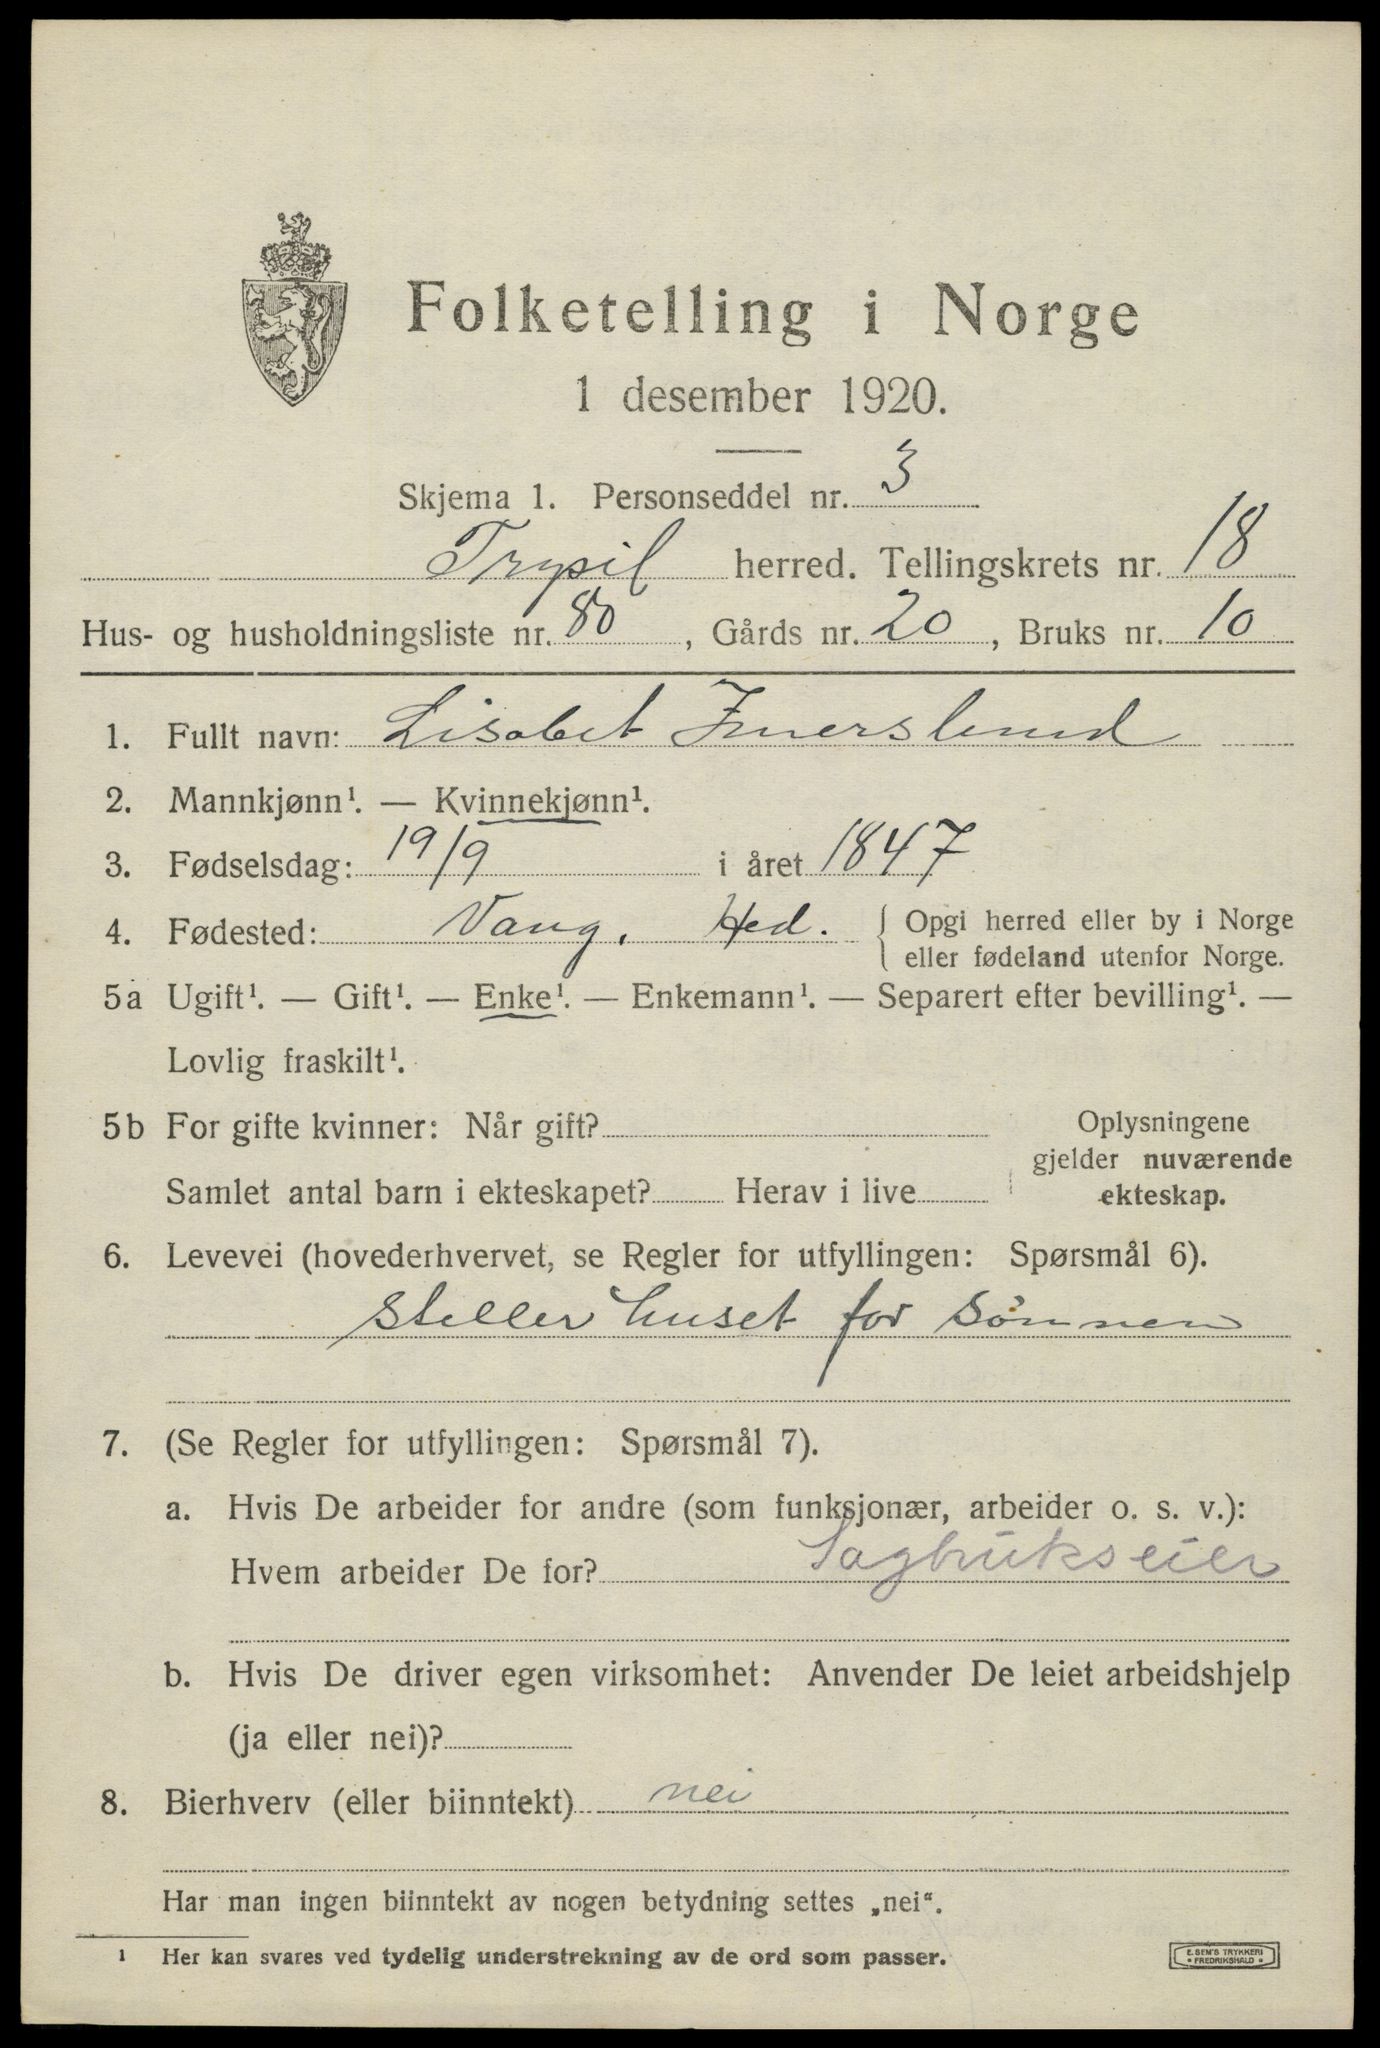 Folketelling i Norge
1 desember 1920.
Skjema 1. Personseddel nr. 3
Trysil herred. Tellingskrets nr. 18
Hus- og husholdningsliste nr. 80, Gårds nr. 20, Bruks nr. 10
1. Fullt navn: Lisabet Imerslund
2. Mannkjønn¹. — Kvinnekjønn¹.
3. Fødselsdag: 19/9 i året 1847
4. Fødested: Vang, Hed. { Opgi herred eller by i Norge
eller fødeland utenfor Norge.
5a Ugift¹. — Gift¹. — Enke¹. — Enkemann¹. — Separert efter bevilling¹. —
Lovlig fraskilt¹.
5b For gifte kvinner: Når gift?
Samlet antal barn i ekteskapet? Herav i live
Oplysningene
gjelder nuværende
ekteskap.
6. Levevei (hovederhvervet, se Regler for utfyllingen: Spørsmål 6).
Steller huset for sønnen
7. (Se Regler for utfyllingen: Spørsmål 7).
a. Hvis De arbeider for andre (som funksjonær, arbeider o. s. v.):
Hvem arbeider De for? Sagbrukseier
b. Hvis De driver egen virksomhet: Anvender De leiet arbeidshjelp
(ja eller nei)?
8. Bierhverv (eller biinntekt) nei
Har man ingen biinntekt av nogen betydning settes „nei“.
¹ Her kan svares ved tydelig understrekning av de ord som passer.
E. SEM'S TRYKKERI
• FREDRIKSHALD •